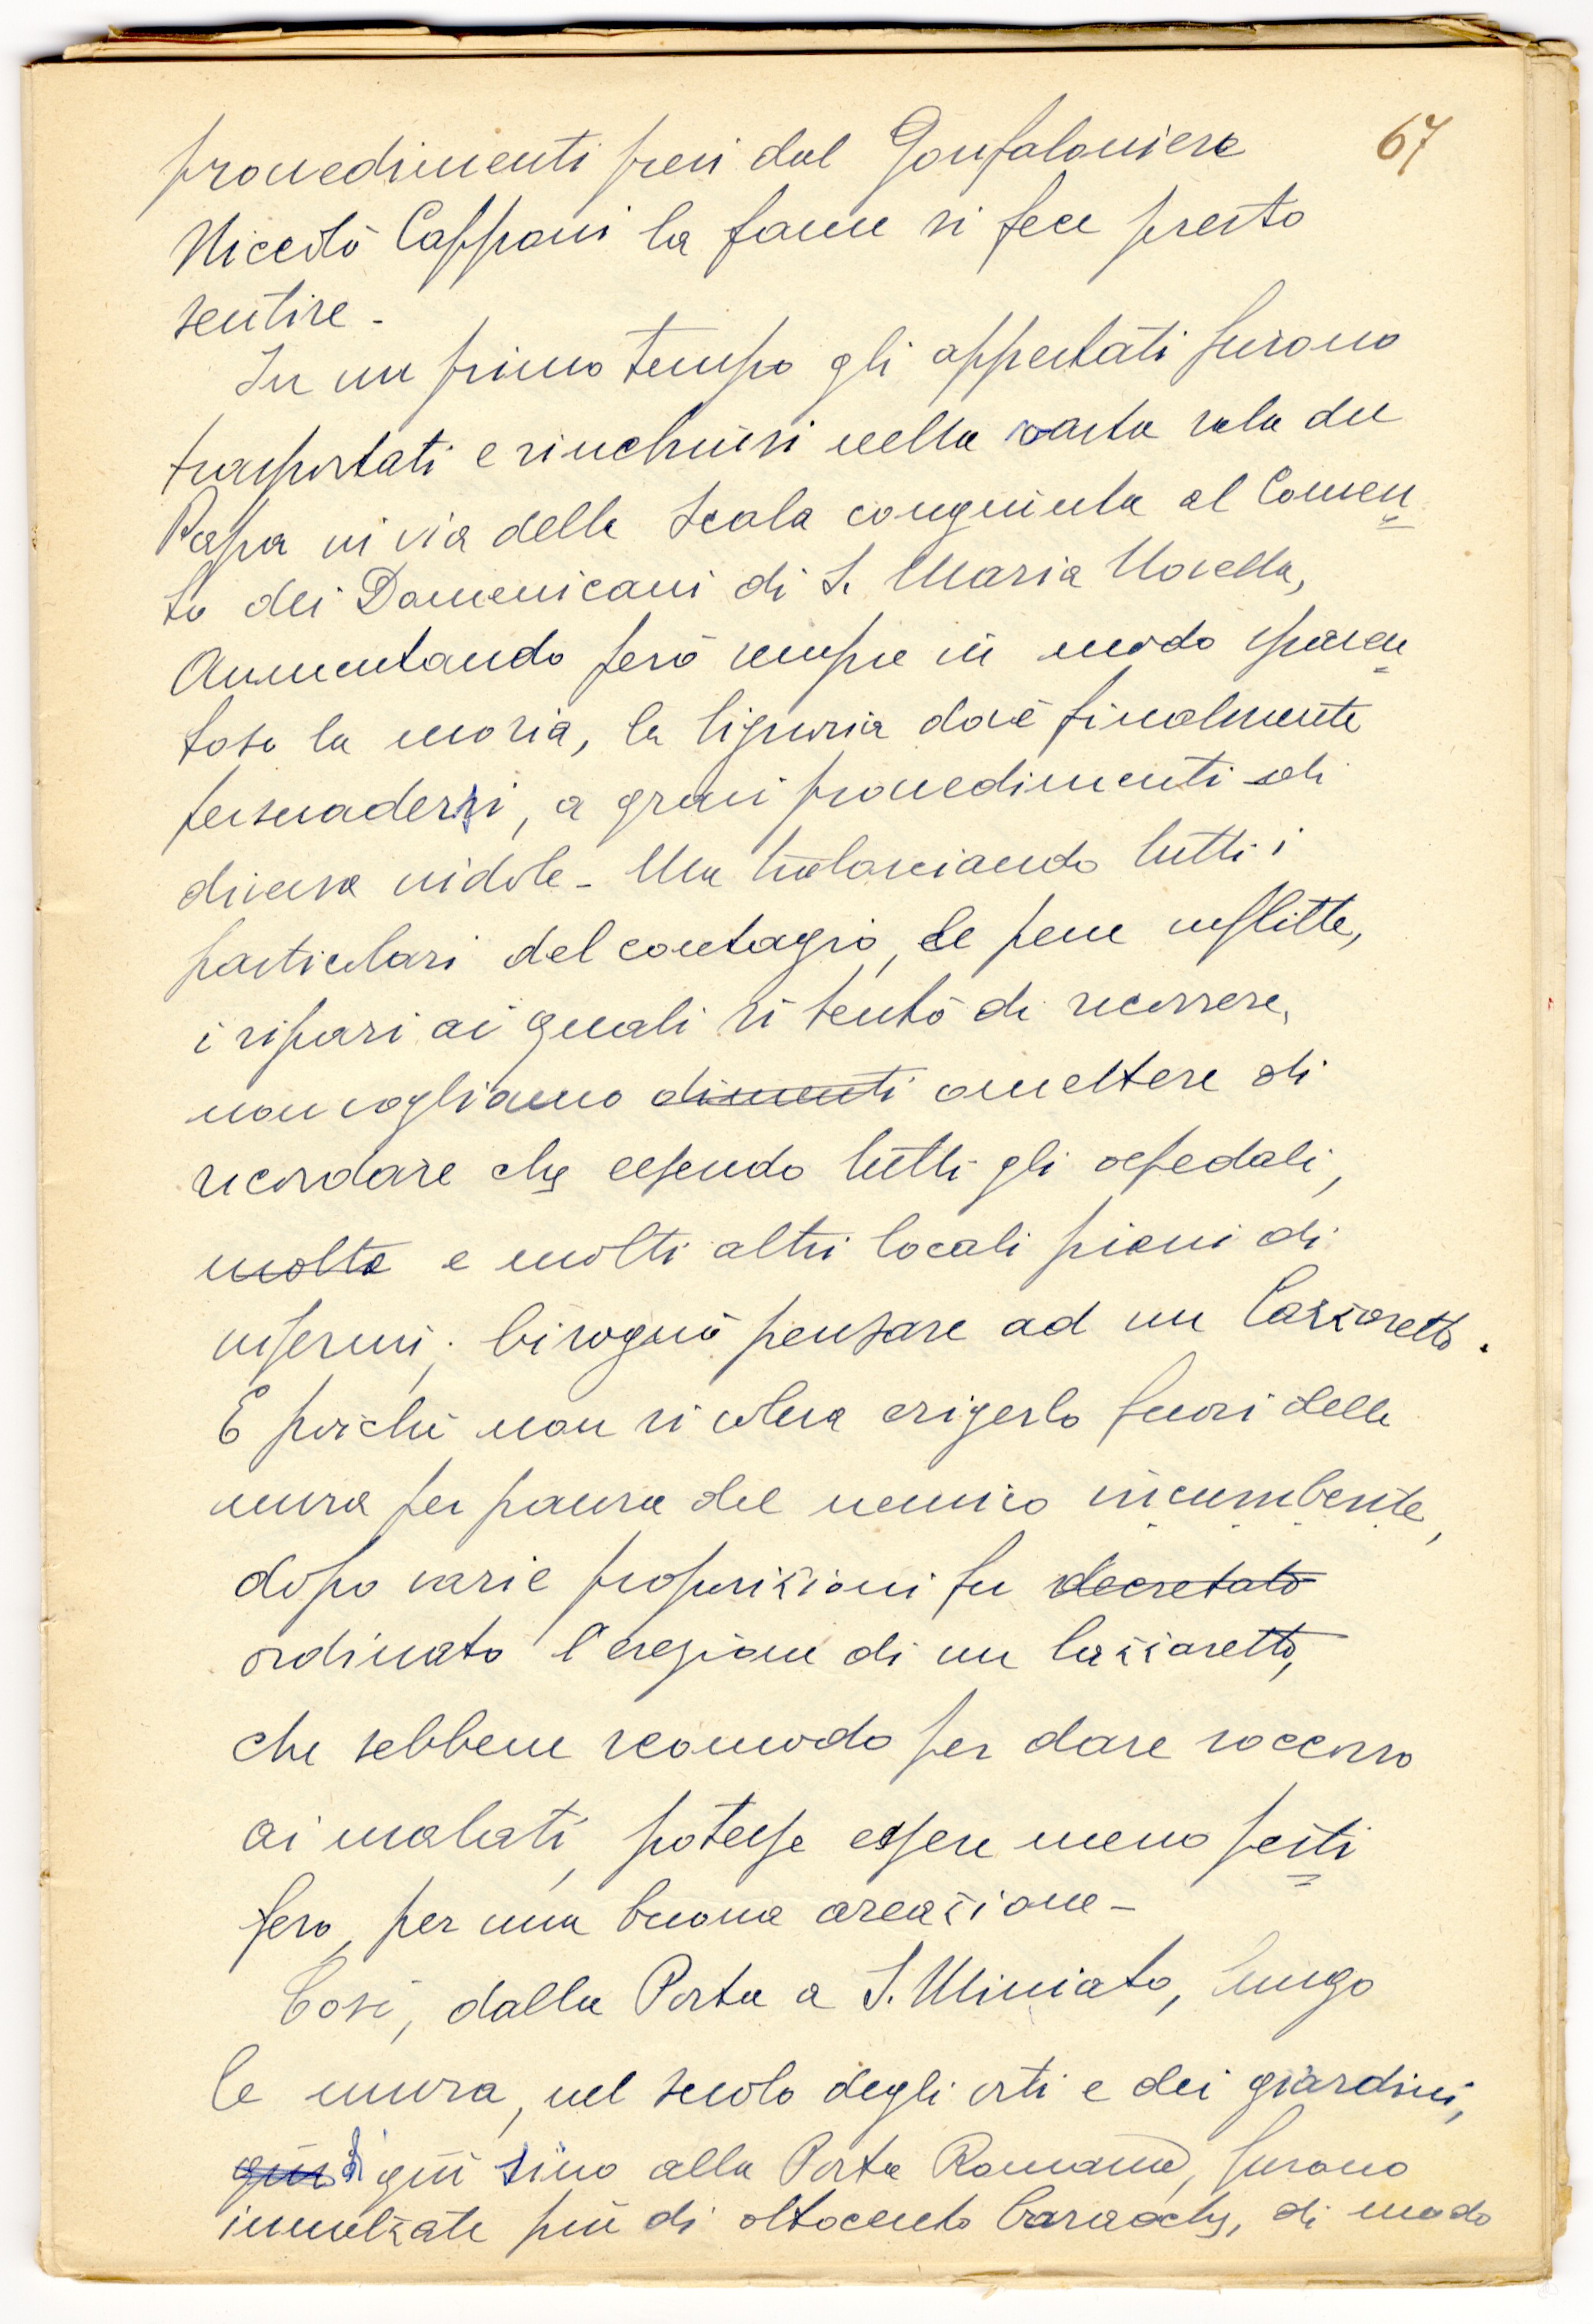 67
provvedimenti presi dal Gonfaloniere
Niccolò Capponi la fame si fece presto
sentire -
In un primo tempo gli appestati furono
trasportati e rinchiusi nella vasta sala del
Papa in via della Scala congiunta al Conven
to dei Domenicani di S. Maria Novella,
Aumentando però sempre in modo spaven
toso la moria, la Signoria dové finalmente
persuadersi, a gravi provvedimenti di
diversa indole - Ma tralasciando tutti i
particolari del contagio, le pene inflitte,
i ripari ai quali si tentò di ricorrere,
non vogliamo dimenti omettere di
ricordare che essendo tutti gli ospedali,
molte e molti altri locali pieni di
infermi, bisognò pensare ad un Lazzaretto.
E poiché non si voleva erigerlo fuori delle
mura per paura del nemico incumbente,
dopo varie proposizioni fu decretato
ordinato l'erezione di un lazzaretto,
che sebbene scomodo per dare soccorso
ai malati, potesse essere meno pesti
fero, per una buona areazione -
Così, dalla Porta a S. Miniato, lungo
le mura, nel suolo degli orti e dei giardini,
quin di qui sino alla Porta Romana, furono
innalzate più di ottocento baracche, di modo